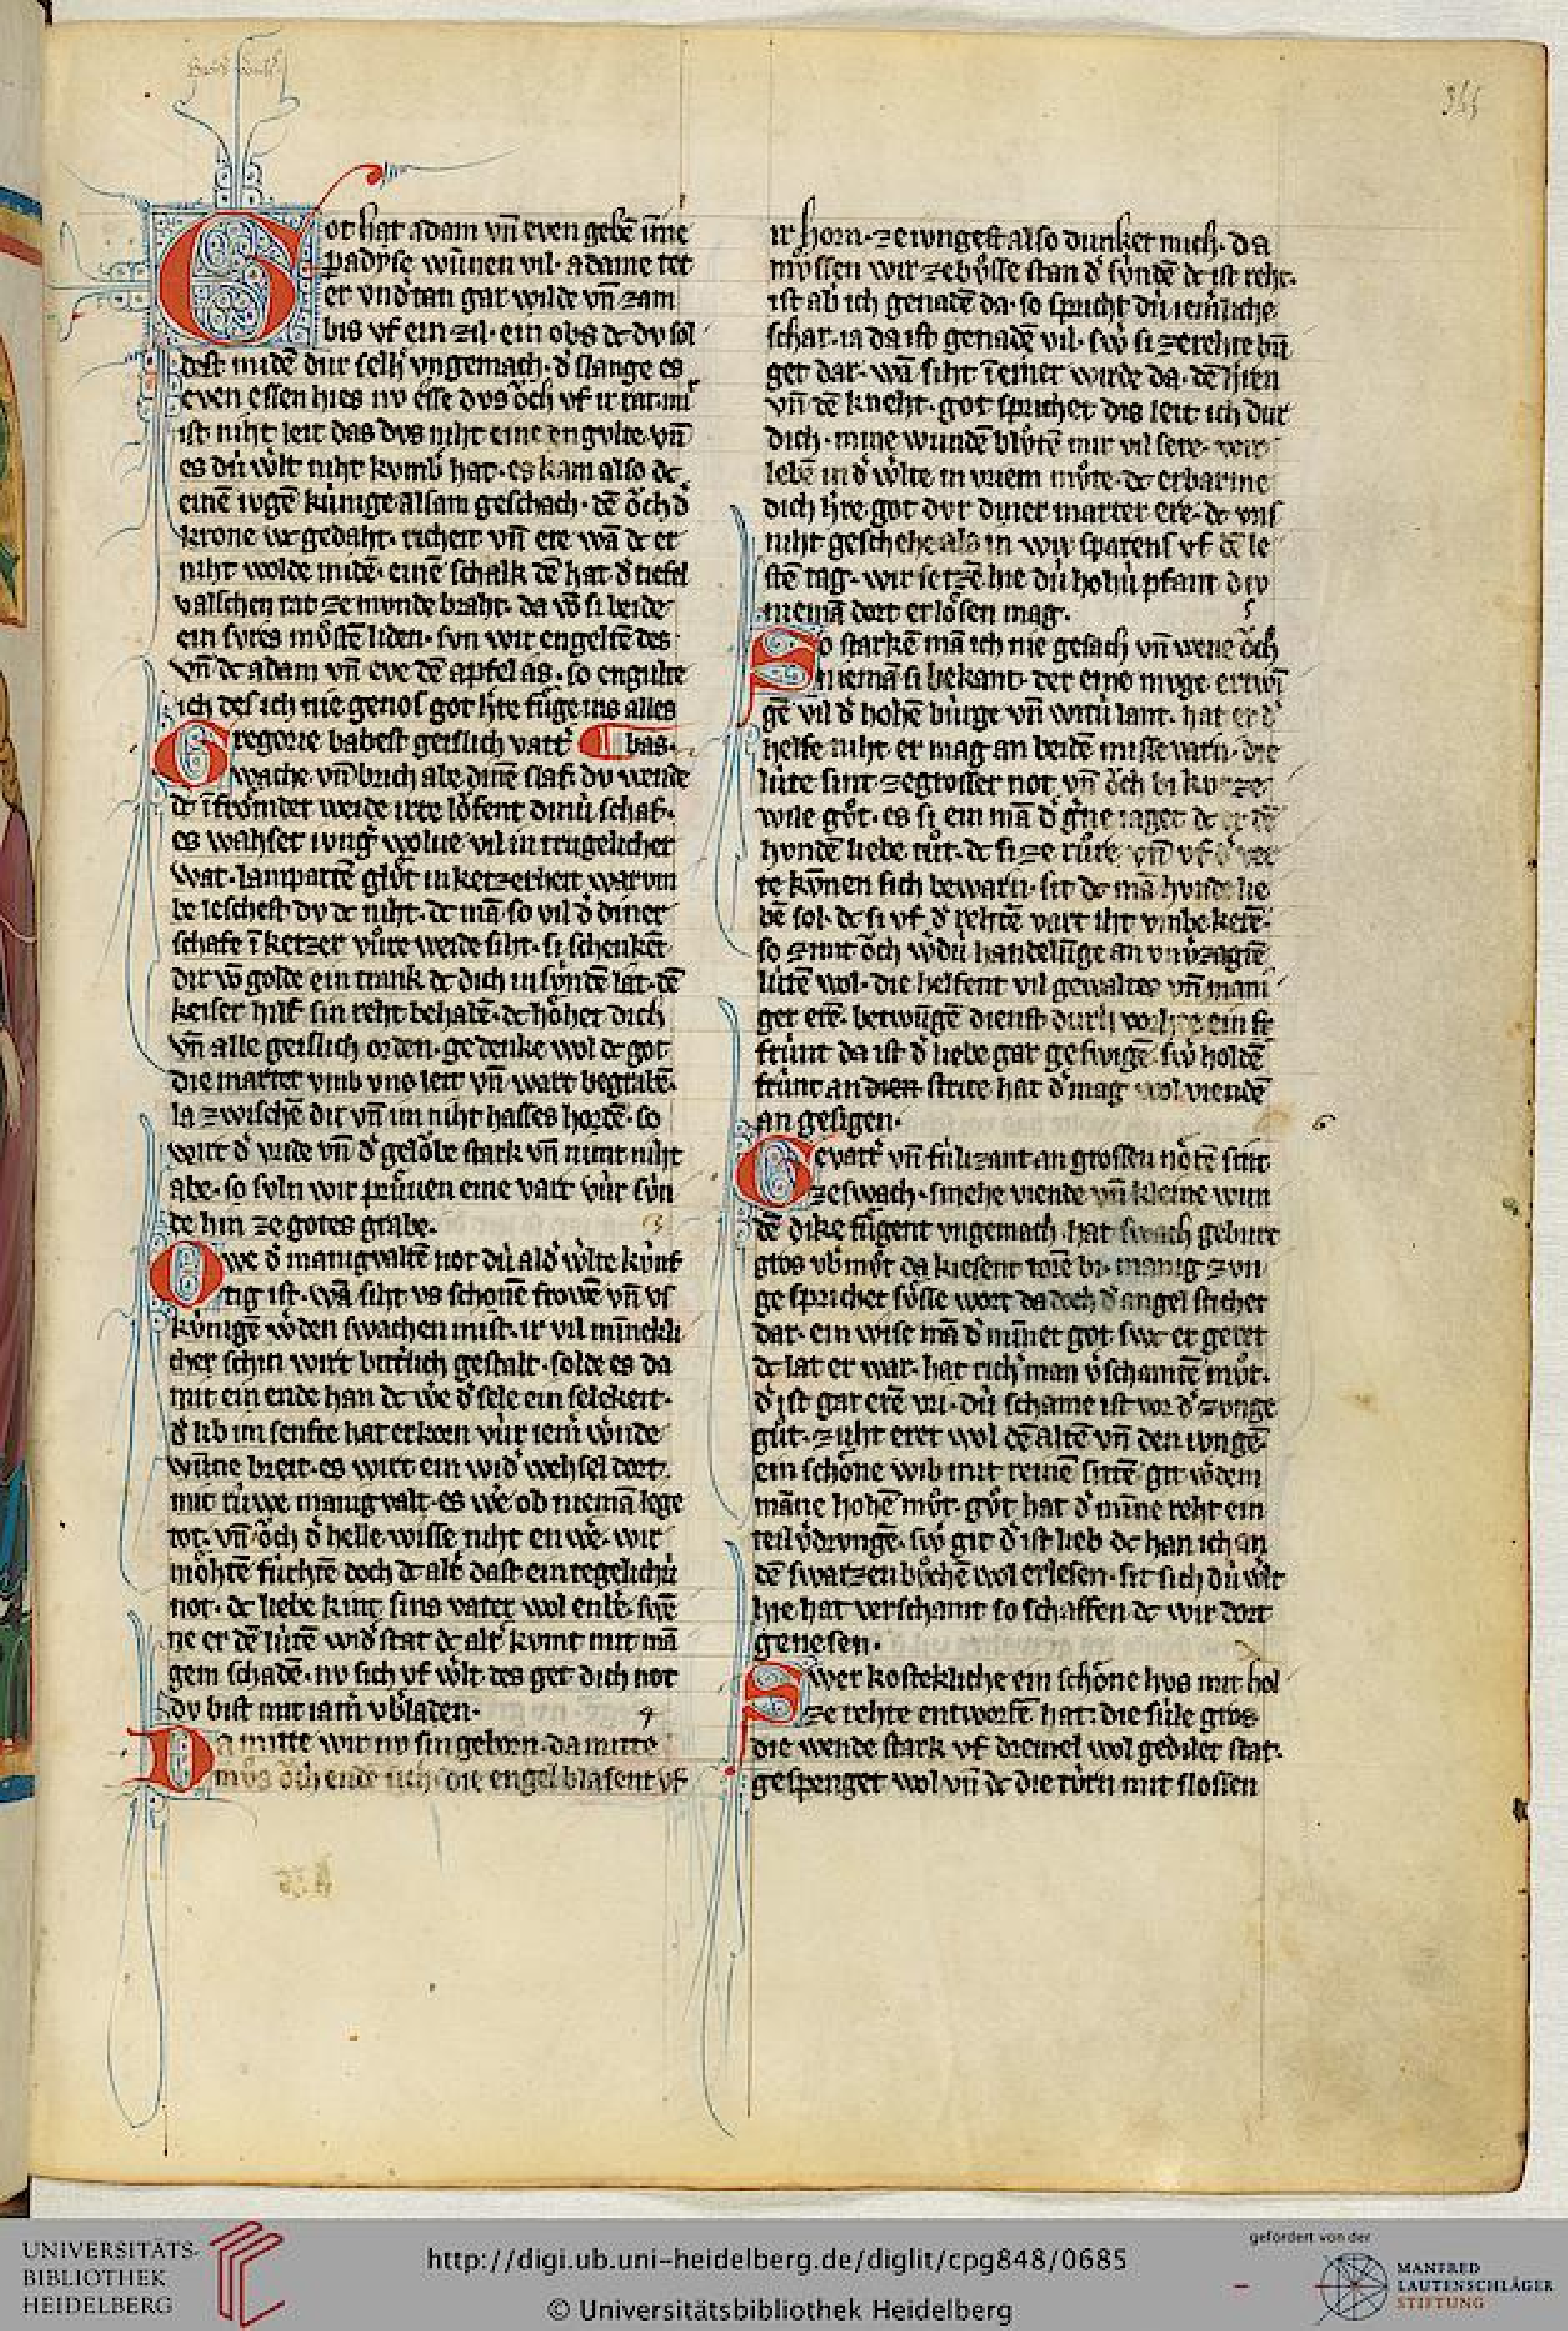 344
Got hat adam vn̄ even gebē ime
padyse wūnen vil · adame tet
er vnd̾tan gar wilde vn̄ zam
bis vf ein zil · ein obs dc dv sol
dest midē dur selh̾ vngemach · d̾ slange es
even essen hies nv esse dvs o̍ch vf ir rat · mir
ist niht leit das dvs niht eine engvlte · vn̄
es dù wlt niht kvmb̾ hat · es kam also dc
einē ivgē kùnige alsam geschach · dē o̍ch d̾
krone wc gedaht · richeit vn̄ ere wā dc er
niht wolde midē · einē schalk dē hat d̾ tiefel
valschen rat ze mvnde braht · da vō si beide
ein svres mvͦstē liden · svn wir engeltē des
vn̄ dc adam vn̄ eve dē apfel as · so engulte
ich des ich nie genos got h̾re fùge ins alles
Gregorie babest geislich vatt̾ bas ·
wache vn̄ brich abe dinē slaf · dv wende
dc ī frömder weide irre lǒfent dinù schaf ·
es wahset ivng̾ wolue vil in trugelicher
wat · lampartē glvͦt in ketzerheit warvm
be leschest dv dc niht · dc mā so vil d̾ diner
schafe ī ketzer vůre weide siht · si schenkēt
dir vō golde ein trank dc dich in sùndē lat · dē
keiser hilf sin reht behabē · dc höhet dich
vn̄ alle geislich orden · gedenke wol dc got
die marter vmb vns leit vn̄ wart begrabē ·
la zwischē dir vn̄ im niht hasses hordē · so
wirt d̾ vride vn̄ d̾ gelǒbe stark vn̄ nimt niht
abe · so svln wir prùuen eine vart vùr sùn
de hin ze gotes grabe ·
3
Owe d̾ manigvaltē not dù al d̾ wlte kùnf
tig ist · wā siht vs schonē frowē vn̄ vs
kùnigē w̾den swachen mist · ir vil minekli
cher schin wirt bitt̾lich gestalt · solde es da
mit ein ende han dc we d̾ sele ein selekeit ·
d̾ lib im senfte hat erkorn vùr iem̾ w̾nde
wūne breit · es wirt ein wid̾ wehsel dort
mit rùwe manigvalt · es we ob niemā lege
tot · vn̄ o̍ch d̾ helle wisse niht en we · wir
möhtē fùrhtē doch dc alt̾ dast ein tegelichù
not · dc liebe kint sins vater wol enbe̾ · swē
ne er dē lùtē wid̾ stat dc alt̾ kvmt mit mā
gem schadē · nv sich vf wlt des get dich not
dv bist mit iam̾ vb̾laden ·
4
Da mitte wir nv sin geborn · da mitte
mvͦs o̍ch ende sich · die engel blasent vf
ir horn · ze ivngest also dunket mich · da
mvͤssen wir ze bvͦsse stan d̾ sùndē dc ist reht ·
ist ab̾ ich genadē da · so spricht dù reinliche
schar · ia da ist genadē vil · sw̾ si ze rehte brī
get dar · wā siht ī einer wirde da · dē h̾ren
vn̄ dē kneht · got sprichet dis leit ich dur
dich · mine wundē blvͦtē mir vil sere · wir
lebē in d̾ wlte in vriem mvͦte · dc erbarme
dich h̾re got dvr diner marter ere · dc vns
niht geschehe als in wir sparens vf dē le
stē tag · wir setzē hie dù hohù pfant dìv
niemā dort erlösen mag ·
5
So starkē mā ich nie gesach vn̄ wene o̍ch
niemā si bekant · der eine mvge ertwī
gē vil d̾ hohē bùrge vn̄ witù lant · hat er d̾
helfe niht · er mag an beidē misse varn · die
lùte sint ze grosser not vn̄ o̍ch bi kvrze
wile gvͦt · es si ein mā d̾ g̾ne iaget dc er dē
hvndē liebe tuͦt · dc si ze rùre vn̄ vf d̾ ver
te kùnen sich bewarn · sit dc mā hvnde lie
bē sol · dc si vf d̾ rehtē vart iht vmbe kerē ·
so zimt o̍ch w̾dù handelūge an vnv̾zagtē
lùtē wol · die helfent vil gewaltes vn̄ mani
ger erē · betwūgē dienst durh vorhte ein fr
frùnt da ist d̾ liebe gar geswigē · sw̾ holdē
frùnt an dien strite hat d̾ mag wol viendē
an gesigen ·
6
Gevatt̾ vn̄ fùlizant an grossen nötē sint
ze swach · smehe viende vn̄ kleine wun
dē dike fùgent vngemach · hat swach geburt
gros vb̾mvͦt da kiesent torē bi · manig zvn
ge sprichet sùsse wort da doch d̾ angel stichet
dar · ein wise mā d̾ minnet got swc er geret
dc lat er war · hat rich̾ man v̾schamtē mvͦt ·
d̾ ist gar erē vri · dù schame ist vor d̾ zvnge
guͦt · zuht eret wol dē altē vn̄ den ivngē
ein schöne wib mit reinē sittē git w̾dem
māne hohē mvͦt · guͦt hat d̾ minne reht ein
teil v̾drungē · sw̾ git d̾ ist lieb dc han ich an
dē swarzen bvͦchē wol erlesen · sit sich dù wlt
hie hat verschamt so schaffen dc wir dort
genesen ·
Swer kostekliche ein schöne hvs mit hol
ze rehte entworfē hat : die sùle gros
die wende stark vf dremel wol gedilet stat ·
gespenget wol vn̄ dc die tùrn mit slossen
UNIVERSITÄTS-
BIBLIOTHEK
HEIDELBERG
http://digi.ub.uni-heidelberg.de/diglit/cpg848/0685
© Universitätsbibliothek Heidelberg
gefördert von der
MANFRED
LAUTENSCHLÄGER
STIFTUNG